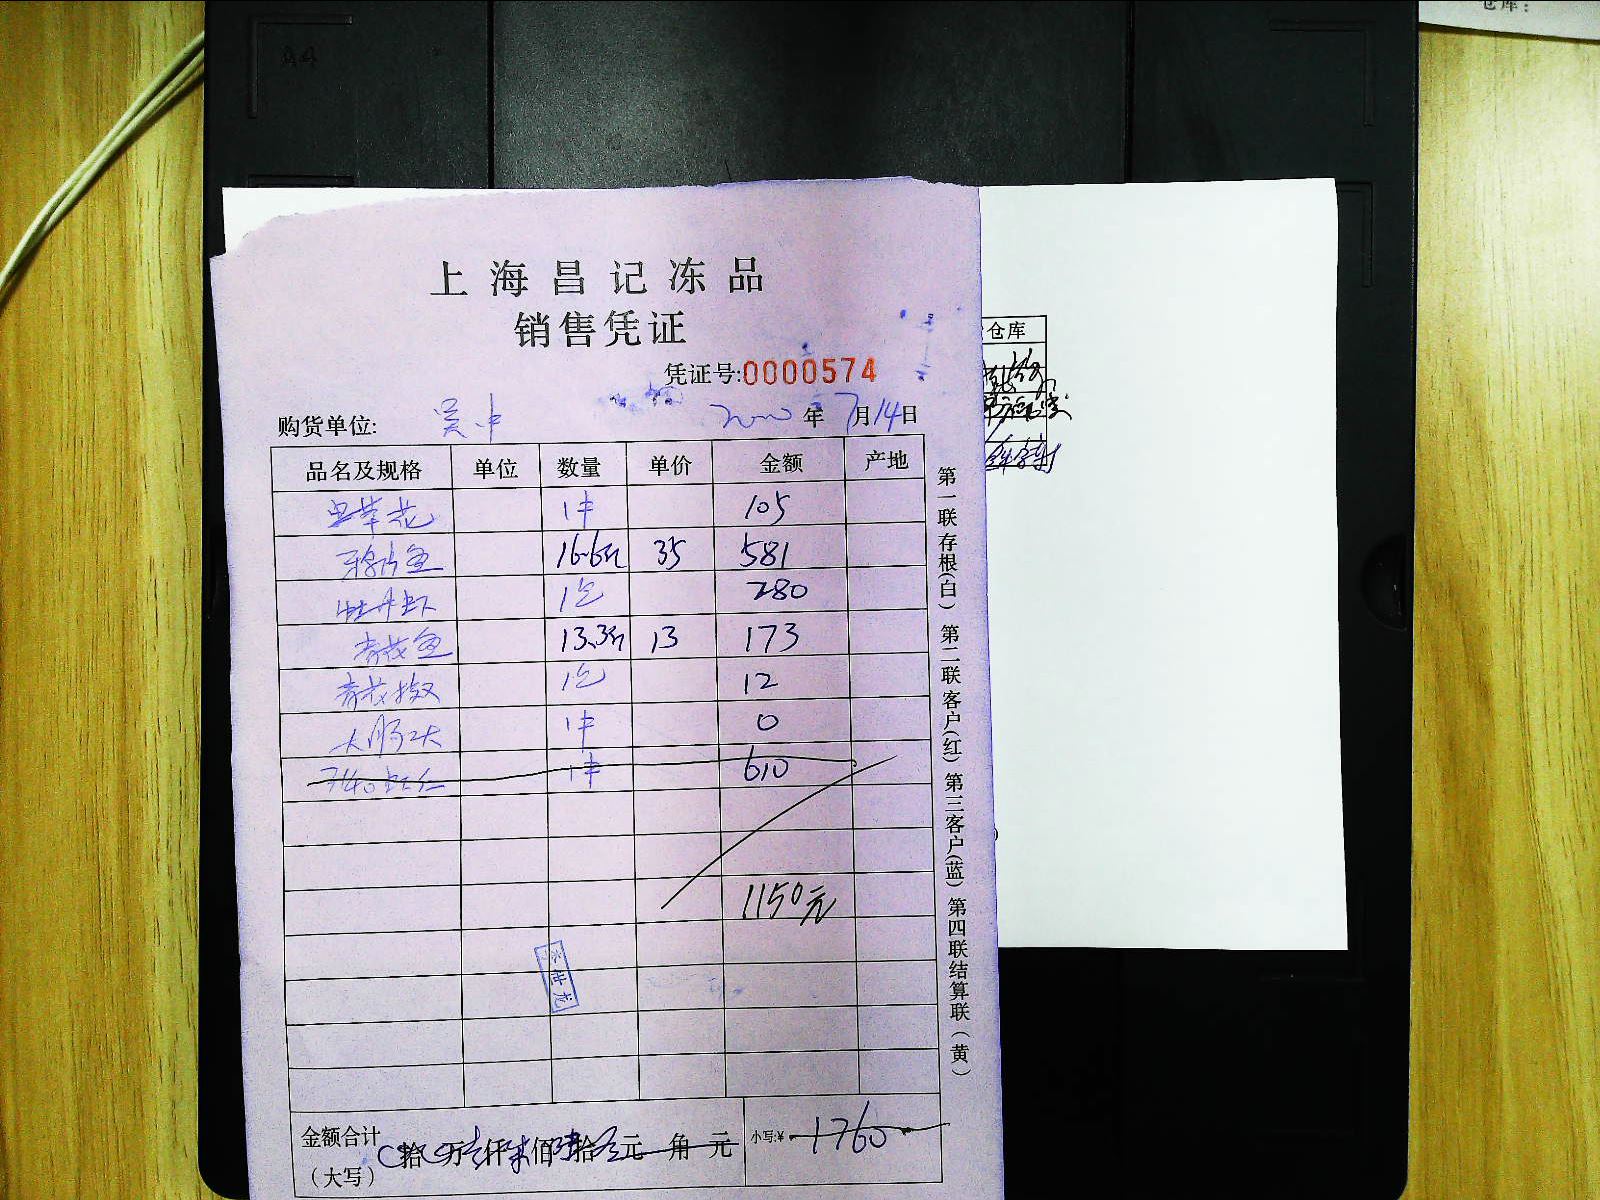 仓库:
A4
上海昌记冻品
销售凭证
凭证号:0000574
购货单位: 吴中 年 7月14日
品名及规格 单位 数量 单价 金额 产地
虫草花 1件 105
鱼 16.6斤 35 581
牡丹虾 1包 280
青花鱼 13.3斤 13 173
青花椒 1包 12
大肠头 1件 0
7140虾仁 1件 610
1150元
金额合计 拾 万 仟 佰 拾 元 角 元 小写:¥ 1760
(大写)
第一联存根(白) 第二联客户(红) 第三客户(蓝) 第四联结算联(黄)
仓库